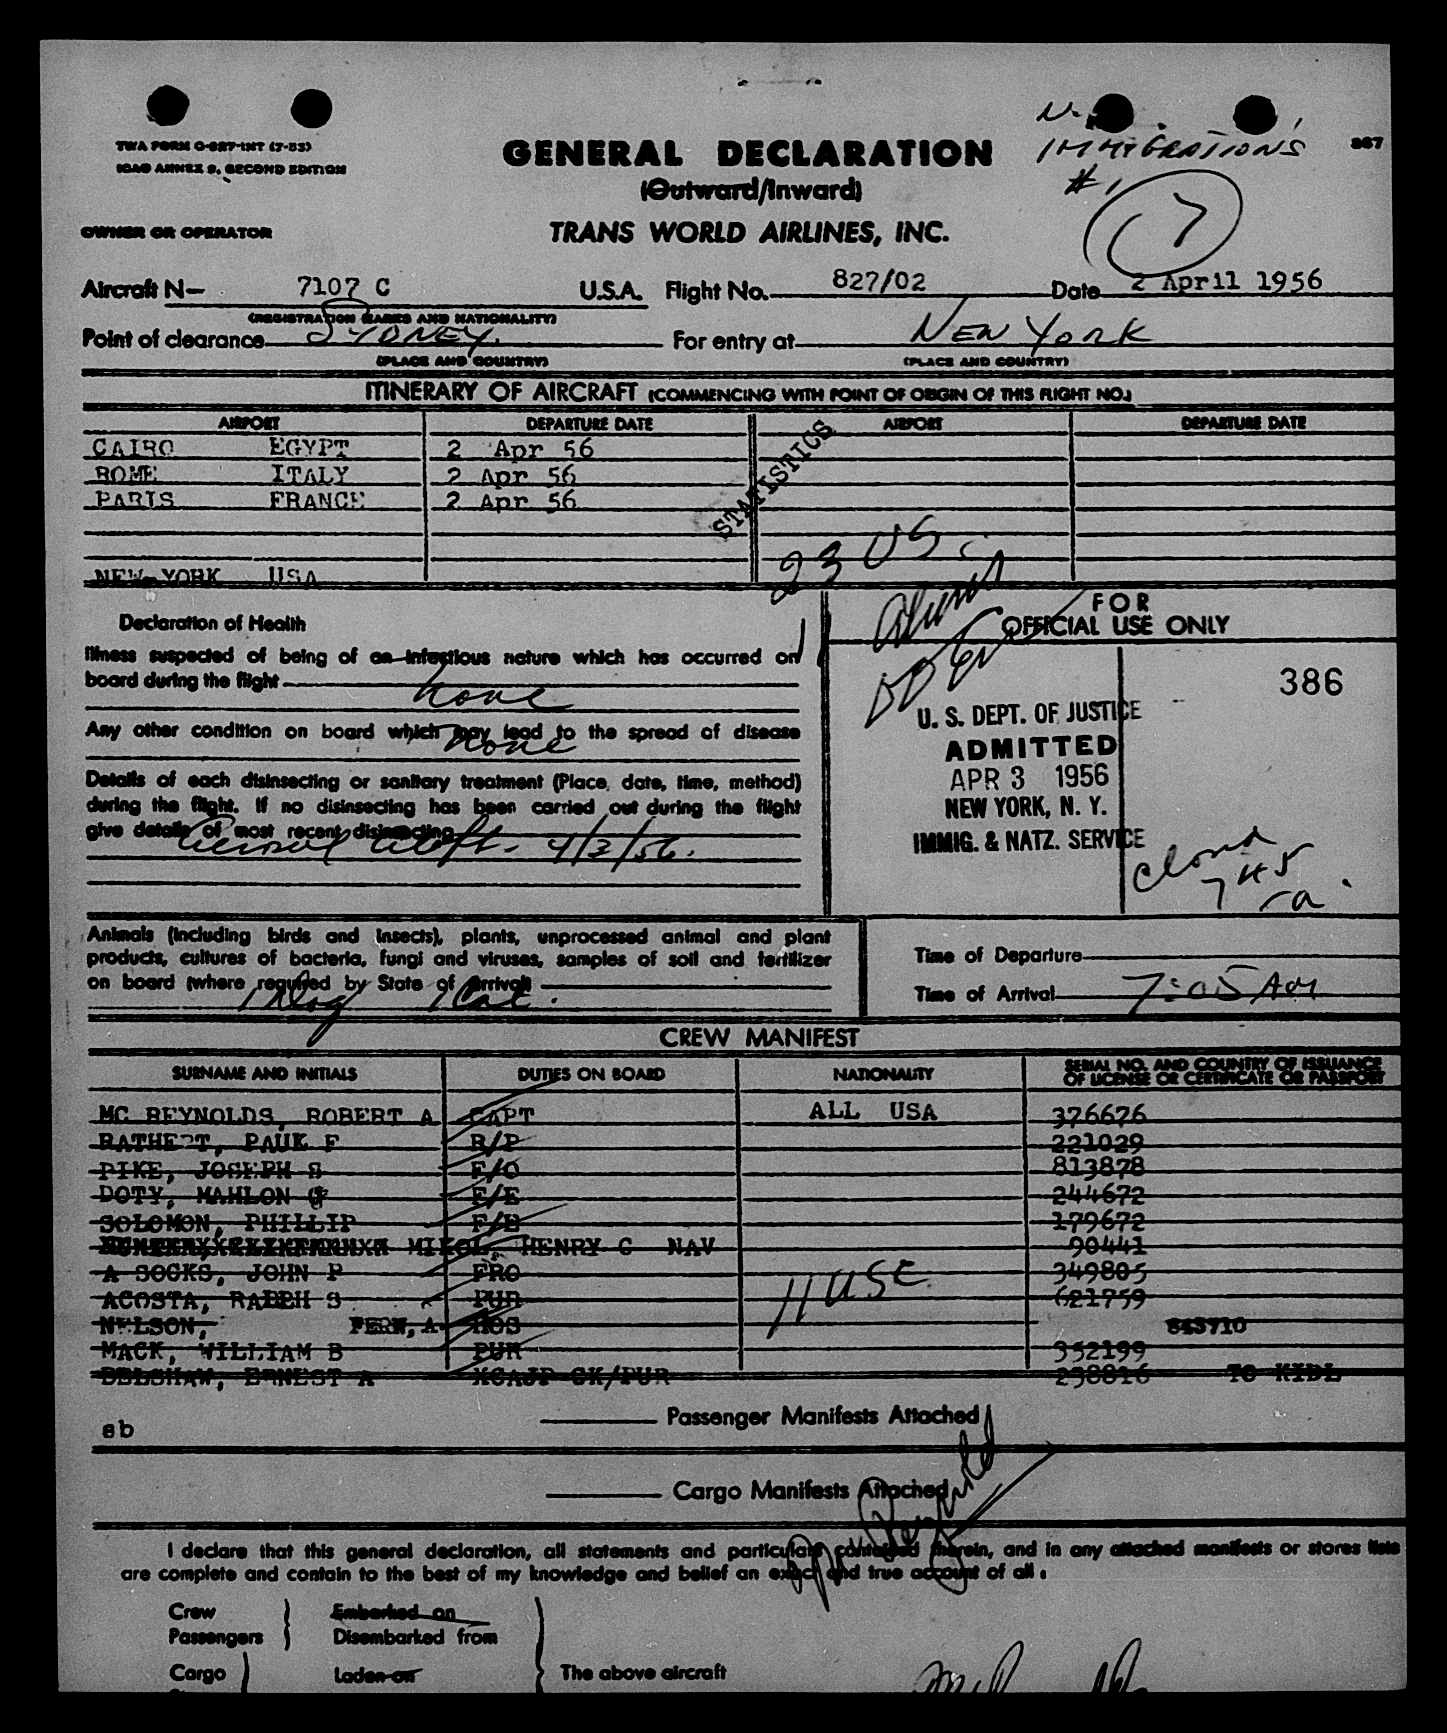 N.Y.
IMMIGRATIONS
#1
7
867
TWA FORM O-827-INT (7-53)
ICAO ANNEX 9, SECOND EDITION
GENERAL DECLARATION
(Outward/Inward)
OWNER OR OPERATOR
TRANS WORLD AIRLINES, INC.
Aircraft N— 7107 C U.S.A. Flight No. 827/02 Date 2 April 1956
(REGISTRATION MARKS AND NATIONALITY)
Point of clearance SYDNEY. For entry at NEW YORK
(PLACE AND COUNTRY) (PLACE AND COUNTRY)
ITINERARY OF AIRCRAFT (COMMENCING WITH POINT OF ORIGIN OF THIS FLIGHT NO.)
AIRPORT DEPARTURE DATE AIRPORT DEPARTURE DATE
CAIRO EGYPT 2 Apr 56
ROME ITALY 2 Apr 56
PARIS FRANCE 2 Apr 56
STATISTICS
23 USC
NEW YORK USA
Declaration of Health
FOR
OFFICIAL USE ONLY
Illness suspected of being of an infectious nature which has occurred on
board during the flight none
Any other condition on board which may lead to the spread of disease
none
Details of each disinsecting or sanitary treatment (Place, date, time, method)
during the flight. If no disinsecting has been carried out during the flight
give details of most recent disinsecting
Aerosol Aloft. 4/3/56.
386
U. S. DEPT. OF JUSTICE
ADMITTED
APR 3 1956
NEW YORK, N. Y.
IMMIG. & NATZ. SERVICE
745
Animals (including birds and insects), plants, unprocessed animal and plant
products, cultures of bacteria, fungi and viruses, samples of soil and fertilizer
on board (where required by State of Arrival)
1 Dog 1 Cat.
Time of Departure
Time of Arrival 7:05 AM
CREW MANIFEST
SURNAME AND INITIALS DUTIES ON BOARD NATIONALITY SERIAL NO. AND COUNTRY OF ISSUANCE
OF LICENSE OR CERTIFICATE OR PASSPORT
MC REYNOLDS, ROBERT A CAPT ALL USA 376676
RATHERT, PAUL F R/P 221029
PIKE, JOSEPH S F/O 813878
DOTY, MAHLON G F/E 244672
SOLOMON, PHILLIP F/E 179672
MIKOL, HENRY C NAV 90441
A SOCKS, JOHN P FRO 349805
ACOSTA, RALPH S PUR 621759
NELSON, FERN, A HOS 843710
MACK, WILLIAM B PUR 352199
BELSHAW, ERNEST A XCAJP CK/PUR 238816 TO KIDL
11 USC
sb
Passenger Manifests Attached
Cargo Manifests Attached
I declare that this general declaration, all statements and particulars contained therein, and in any attached manifests or stores lists
are complete and contain to the best of my knowledge and belief an exact and true account of all:
Crew Embarked on
Passengers Disembarked from
Cargo Laden on The above aircraft